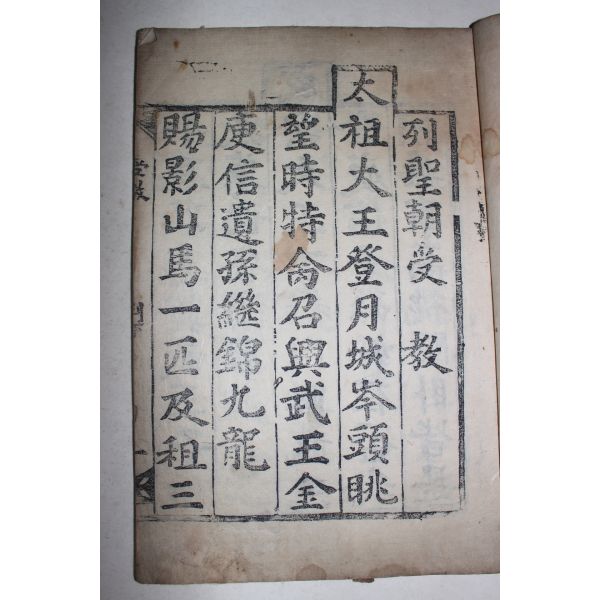 列聖朝受　教
太祖大王登月城岑頭眺
望時特命召興武王金
庾信遺孫繼錦九龍
賜影山馬一匹及租三
受教